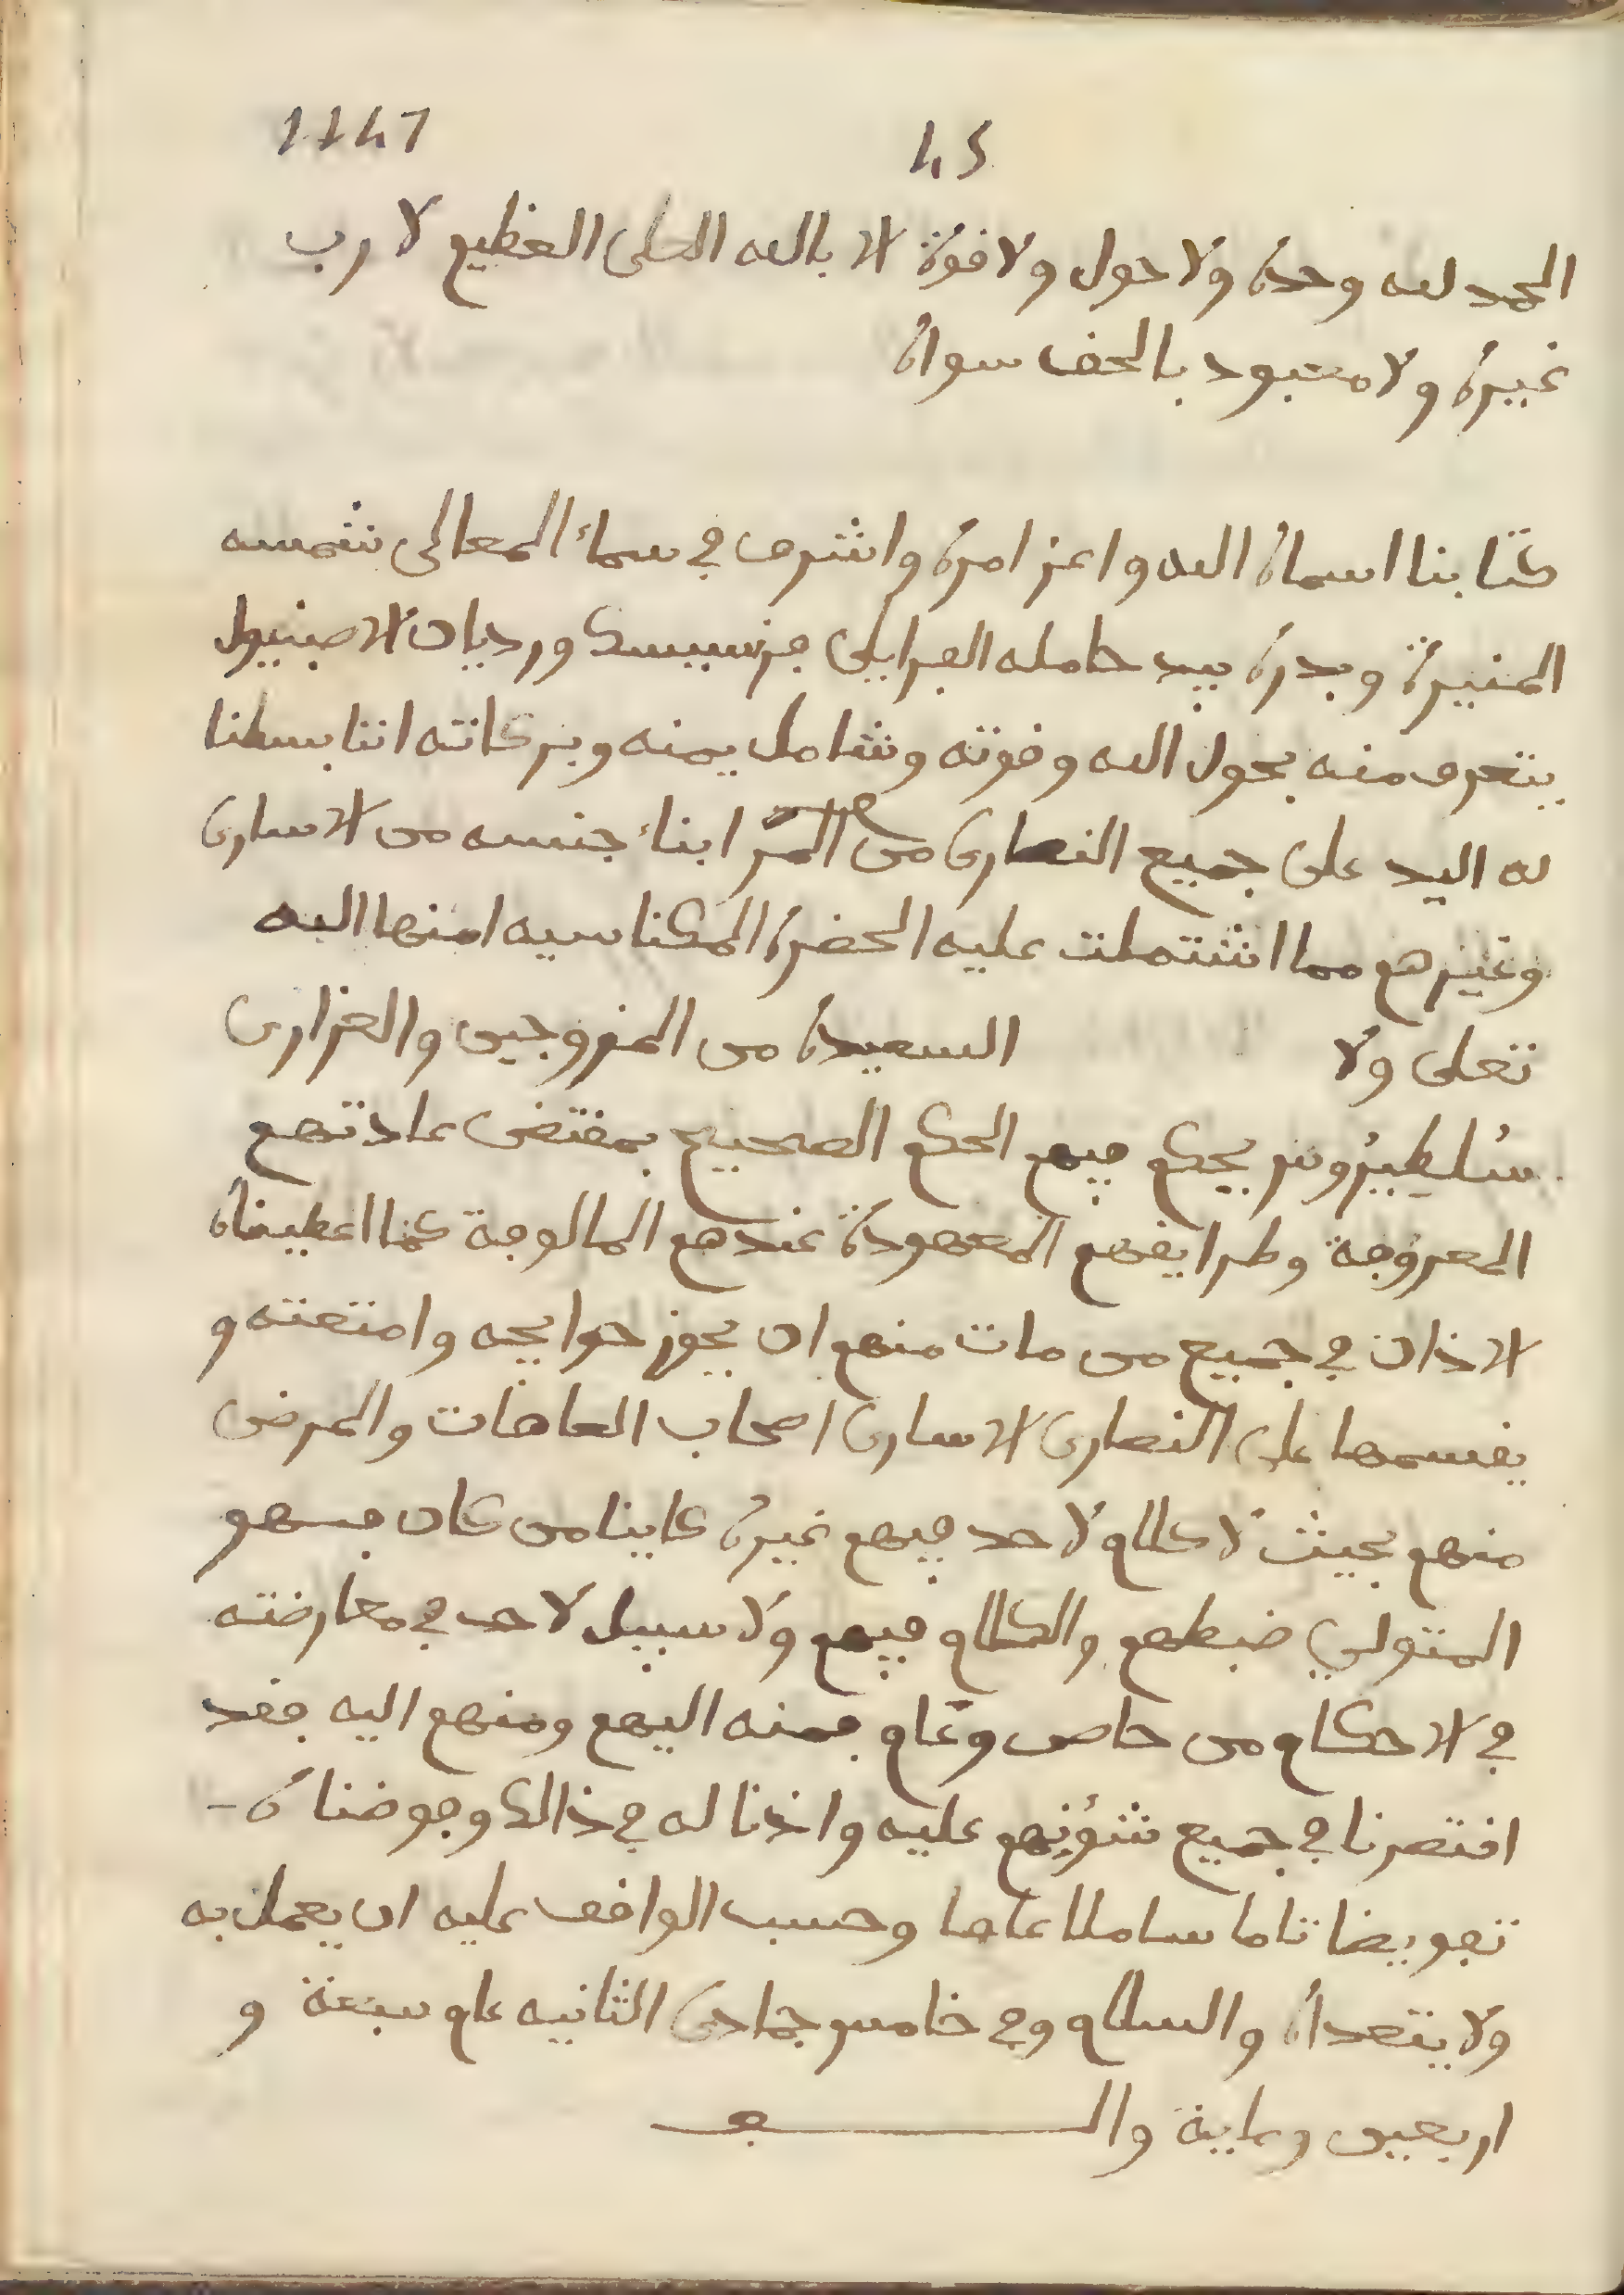 1147
45
الحمد لله وحده ولا حول ولا قوة الا بالله العلى العظيم لا رب
غيره ولا معبود بالحق سواه
كتابنا اسماه الله واعز امره واشرق في سماء المعالى شمسه
المنيرة وبدره بيد حامله الفرايلى فرنسيسك ورديان الاصنبيول
يتعرف منه بحول الله وقوته وشامل يمنه وبركاته اننا بسطنا
له اليد على جميع النصارى من ابناء جنسه من الاسارى
وغيرهم مما اشتملت عليه الحضرة المكناسيه امنها الله
تعلى ولا السعيدة من المزوجين والعزارى
سُلطِيرُوس يحكم فيهم الحكم الصحيح بمقتضى عادتهم
المعروفة وطرايقهم المعهودة عندهم المالوفة كما اعطيناه
الاذان في جميع من مات منهم ان يحوز حوايجه وامتعته و
يقسمها على النصارى الاسارى اصحاب العاهات والمرضى
منهم بحيث لا كلام لاحد فيهم غيره كاينا من كان فهو
المتولي ضبطهم والكلام فيهم ولا سبيل لاحد في معارضته
في الاحكام من خاص وعام فمنه اليهم ومنهم اليه فقد
اقتصرنا في جميع شؤنهم عليه واذنا له في ذالك وفوضناه -
تفويضا تاما ساملا عاما وحسب الواقف عليه ان يعمل به
ولا يتعداه والسلام وفي خامس جمادى الثانيه عام سبعة و
اربعين وماية والف